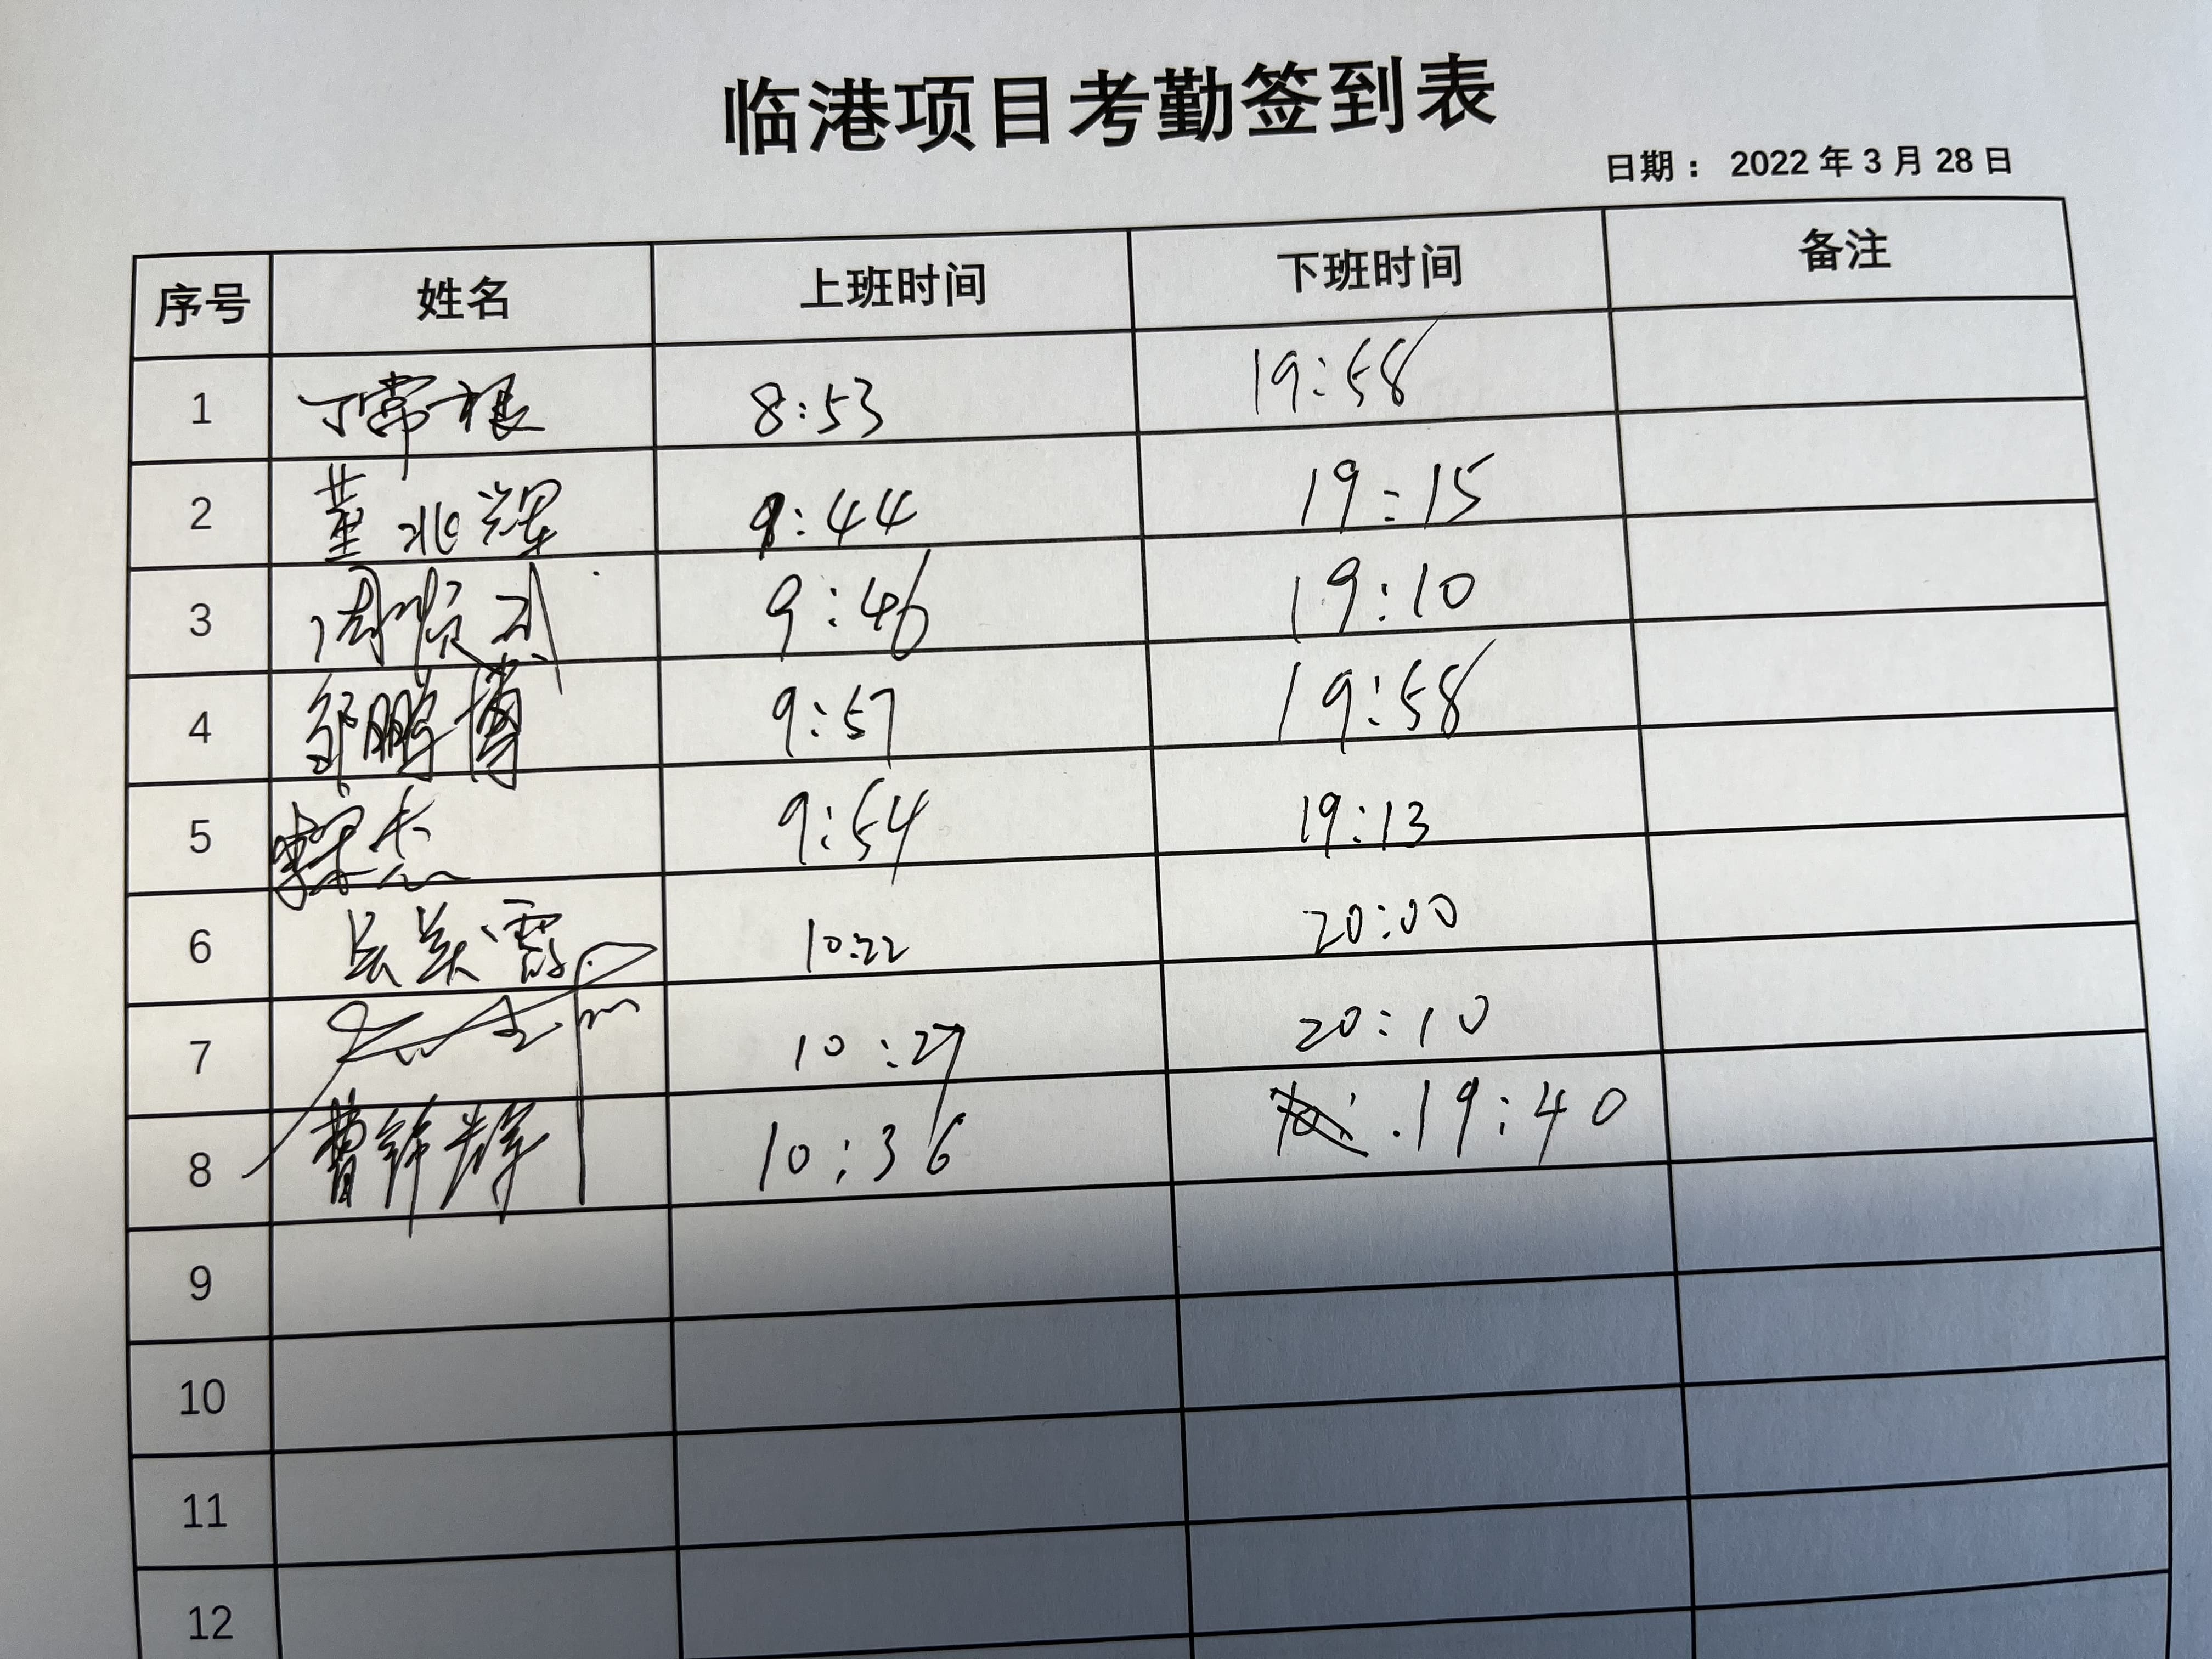 临港项目考勤签到表
日期： 2022 年 3 月 28 日
序号 姓名 上班时间 下班时间 备注
1 丁常根 8:53 19:58
2 董兆辉 9:44 19:15
3 9:46 19:10
4 邹鹏博 9:57 19:58
5 9:54 19:13
6 10:22 20:00
7 10:27 20:10
8 曹锋辉 10:36 19:40
9
10
11
12